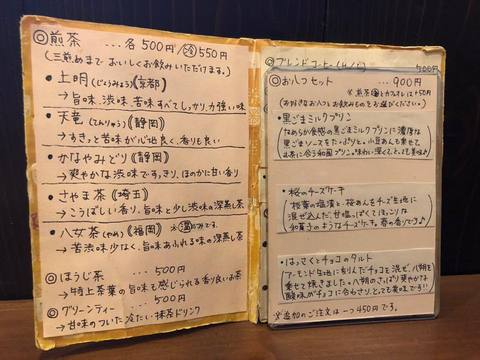 ◎煎茶 ...各500円/㊄550円
(三煎めまでおいしくお飲みいただけます。)
・上明(じょうみょう)《京都》
→旨味、渋味、苦味すべてしっかり、力強い味
・天竜(てんりゅう)《静岡》
→すきっと苦味が心地良く、香りも良い
・かなやみどり《静岡》
→爽やかな渋味ですっきり、ほのかに甘い香り
・さやま茶《埼玉》
→こうばしい香り、旨味と少し渋味の深蒸し茶
・八女茶(やめ)《福岡》※温のみです。
→苦渋味少なく、旨味あふれる味の深蒸し茶
◎ほうじ茶 ... 500円
→特上茶葉の旨味も感じられる香り良いお茶
◎グリーンティー ... 500円
→甘味のついた冷たい抹茶ドリンク
◎ブレンドコーヒー(H/I) 500円
◎お八つセット ... 900円
※煎茶冷とカフェオレは+50円
(お好きなお八つとお飲みものをお選びください。)
・黒ごまミルクプリン
なめらか食感の黒ごまミルクプリンに濃厚な
黒ごまソースをたっぷりと。小豆あんも乗せて
お茶に合う和風プリン。味わい深くてとっても美味♪
・桜のチーズケーキ
桜葉の塩漬と桜あんをチーズ生地に
混ぜ込んだ、甘塩っぱくてほっこりな
和菓子のようなチーズケーキ。春の香りです♪
・はっさくとチョコのタルト
アーモンド生地に刻んだチョコを混ぜ、八朔を
乗せて焼きました。八朔のさっぱり爽やかな
酸味がチョコに合わさり、とっても美味です!!
※追加のご注文は一つ450円です。